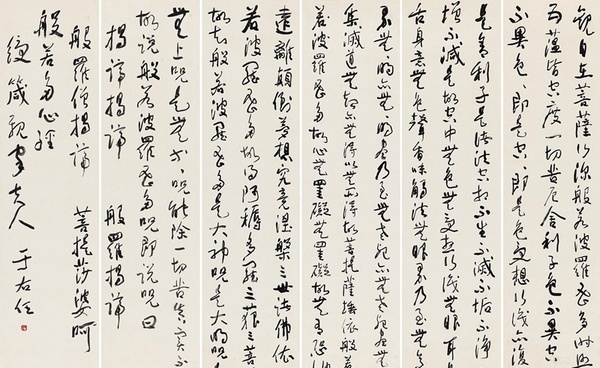 觀自在菩薩行深般若波羅密多時照
五蘊皆空度一切苦厄舍利子色不異空
不異色色即是空空即是色受想行識亦復
是舍利子是諸法空相不生不滅不垢不淨
增不減是故空中無色無受想行識無眼耳
舌身意無色聲香味觸法無眼界乃至無意
界無無明亦無無明盡乃至無老死亦無老死盡無
集滅道無智亦無得以無所得故菩提薩埵依般若
若波羅密多故心無罣礙無罣礙故無有恐
遠離顛倒夢想究竟涅槃三世諸佛依
若波羅密多故得阿耨多羅三藐三菩
故知般若波羅密多是大神咒是大明咒
無上咒是無等等咒能除一切苦真實不
故說般若波羅密多咒即說咒曰
揭諦揭諦 般羅揭諦
般羅僧揭諦 菩提莎婆呵
般若多心經
箴親家夫人 于右任